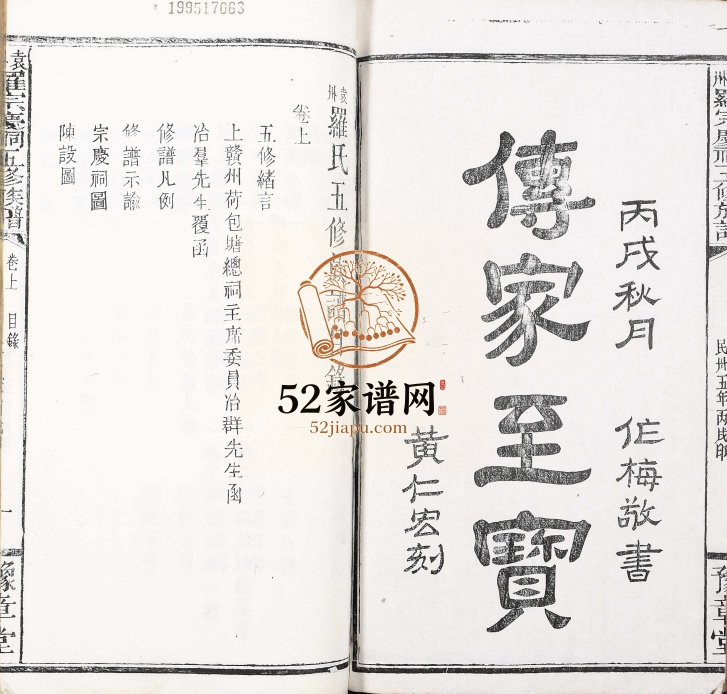 199517063
州羅宗慶祠五修族譜
民卅五年丙戌
豫章堂
丙戌秋月 伯梅敬書
傳家至寶
黄仁宏刻
袁州羅氏五修族譜目錄
卷上
五修緒言
上贛州荷包塘總祠主席委員冶群先生函
冶羣先生覆函
修譜凡例
修譜示諭
宗慶祠圖
陳設圖
袁州羅宗慶祠五修族譜
卷上 目錄
一
豫章堂
52家谱网
52jiapu.com